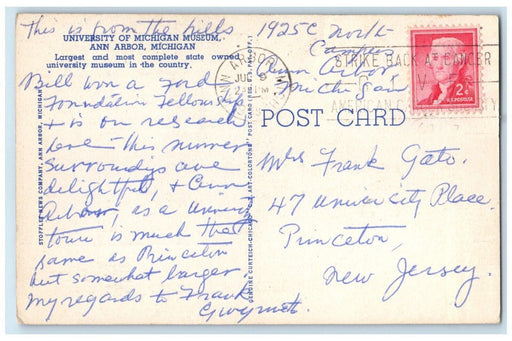 This is from the hills
UNIVERSITY OF MICHIGAN MUSEUM,
ANN ARBOR, MICHIGAN
Largest and most complete state owned
university museum in the country.
Bill won a Ford
Foundation Fellowship
+ is on research
here this summer
Surroundings are
delightful, + Ann
Arbor, as a University
town is much the
same as Princeton
but somewhat larger
My regards to Frank
Gwyneth
1925C North
Campus
Ann Arbor
Michigan
ANN ARBOR, MICH.
PM
STRIKE BACK AT CANCER
AMERICAN
2¢
U.S. POSTAGE
POST CARD
Mrs Frank Gato.
47 University Place.
Princeton,
New Jersey.
STOFFLET NEWS COMPANY, ANN ARBOR, MICHIGAN
GENUINE CURTEICH-CHICAGO "C.T. ART-COLORTONE" POST CARD (REG. U.S. PAT. OFF.)